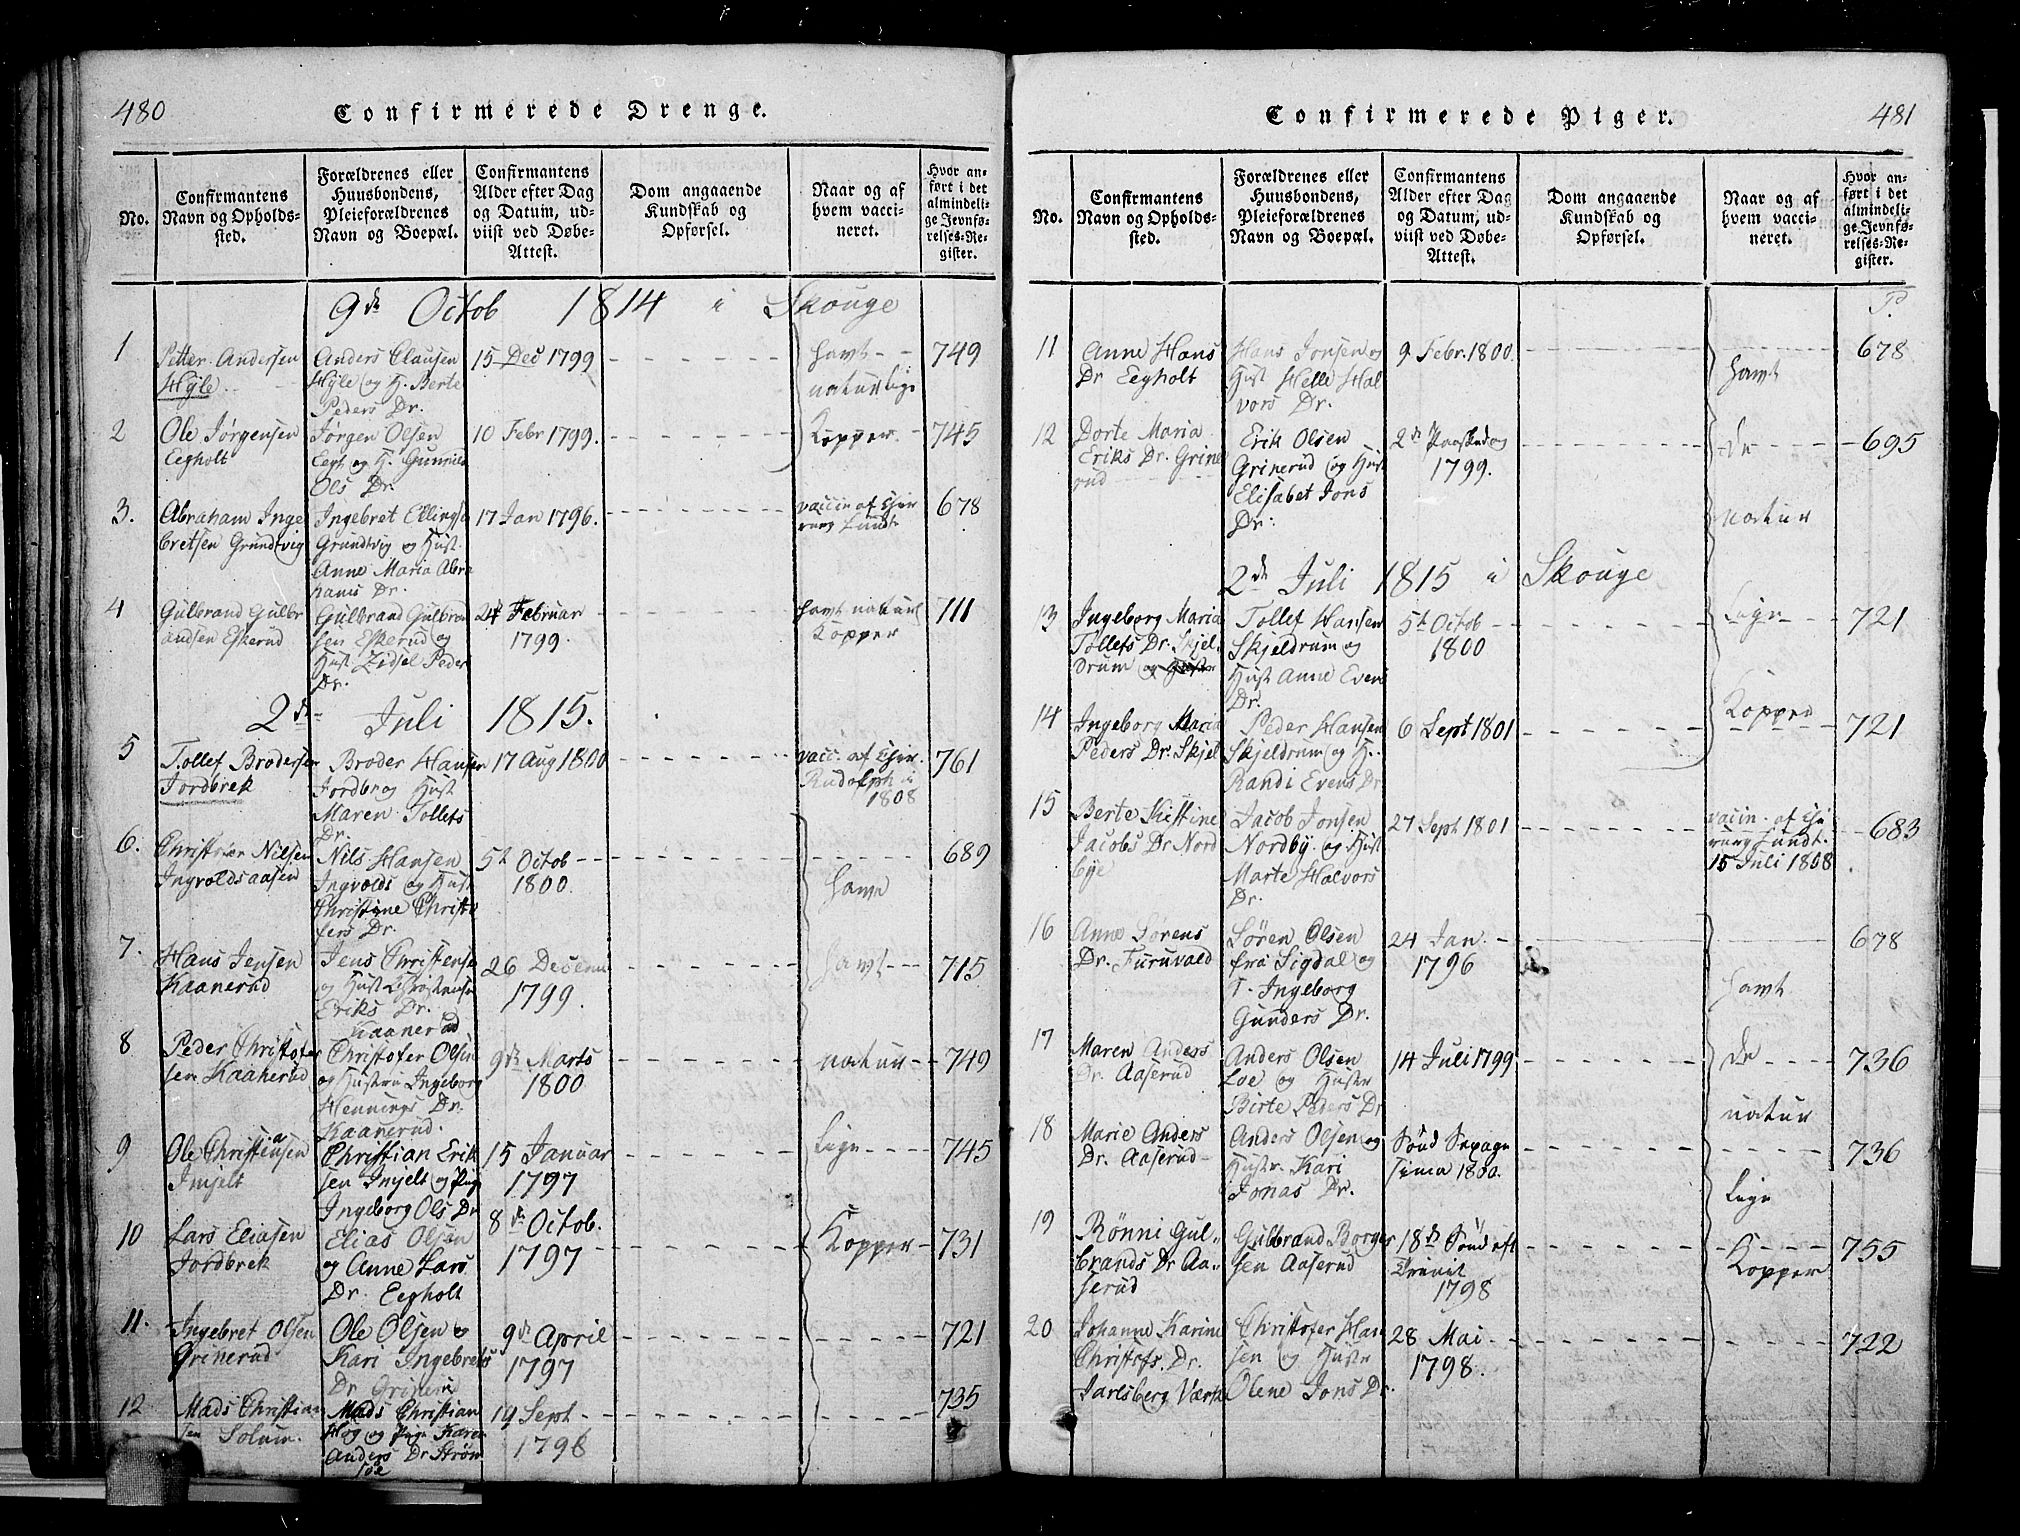 480
Confirmerede Drenge.
No.
Confirmantens
Navn og Opholds-
sted.
Forældrenes eller
Huusbondens,
Pleieforældrenes
Navn og Boepæl.
Confirmantens
Alder efter Dag
og Datum, ud-
viist ved Døbe-
Attest.
Dom angaaende
Kundskab og
Opførsel.
Naar og af
hvem vacci-
neret.
Hvor an-
ført i det
almindeli-
ge Jevnfø-
relses-Re-
gister.
9de Octob 1814 i Skouge
1
Petter Andersen
Hyle
Anders Clausen
Hyle og H. Berte
Peders Dr.
15 Dec 1799
havt
naturlige
Kopper
749
2
Ole Jørgensen
Eegholt
Jørgen Olsen
Eegh og H. Gunnild
Ols Dr.
10 Febr 1799.
745
3.
Abraham Inge
bretsen Grundtvig
Ingebret Ellingse
Grundtvig og Hust.
Anne Maria Abra
hams Dr.
17 Jan 1796.
vaccin af Chir
urg Lundt
678
4
Gulbrand Gulbr
andsen Eskerud
Gulbrand Gulbran
sen Eskerud og
Hust Zidsel Peder
Dr.
24 Februar
1799.
havt naturl
Kopper
711
2de Juli 1815.
5
Tollef Brodersen
Jordbrek
Broder Hansen
Jordbr og Hust
Maren Tollefs
Dr.
17 Aug 1800
vacc. af Chir.
Rudolph i
1808
761
6.
Christofer Nilsen
Ingvoldsaasen
Nils Hansen
Ingvolds og Hust
Christine Christo
fers Dr.
5t Octob
1800.
689
7.
Hans Jensen
Kaanerud
Jens Christense
og Hust
Eriks Dr.
Kaanerud
26 Decem
1799.
havt
715
8
Peder Christofer
sen Kaanerud
Christofer Olsen
og Hustru Ingeborg
Hennings Dr.
Kaanerud.
9de Marts
1800
natur
749
9
Ole Christiansen
Injelt
Christian Erik
sen Injelt og Pig
Ingeborg Ols Dr
15 Januar
1797
lige
745
10
Lars Eliasen
Jordbrek
Elias Olsen
og Anne Lars
Dr. Eegholt
8de Octob.
1797
Kopper
731
11.
Ingebret Olsen
Grinerud
Ole Olsen og
Kari Ingebrets
Dr Grineru
9de April
1797
721
12
Mads Christian
sen Solum.
Mads Christian
Hog og Pige Karen
Anders Dr Strøm
søe
19 Sept
1798
735
481
Confirmerede Piger.
No.
Confirmantens
Navn og Opholds-
sted.
Forældrenes eller
Huusbondens,
Pleieforældrenes
Navn og Boepæl.
Confirmantens
Alder efter Dag
og Datum, ud-
viist ved Døbe-
Attest.
Dom angaaende
Kundskab og
Opførsel.
Naar og af
hvem vacci-
neret.
Hvor an-
ført i det
almindeli-
ge Jevnfø-
relses-Re-
gister.
P.
11
Anne Hans
Dr Eegholt
Hans Jonsen og
Hust Helle Hal
vors Dr.
9 Febr. 1800.
havt
678
12
Dorte Maria
Eriks Dr. Grine
rud
Erik Olsen
Grinerud og Hust
Elisabet Jons
Dr.
2de Paaskedag
1799.
de
natur
695
2de Juli 1815 i Skouge
13
Ingeborg Maria
Tollefs Dr. Skjel
drum
Tollef Hansen
Skjeldrum og
Hust Anne Evens
Dr.
5t Octob
1800
lige
721
14
Ingeborg Maria
Peders Dr. Skjel
Peder Hansen
Skjeldrum og H.
Randi Evens Dr
6 Sept 1801
Kopper
721
15
Berte Kistine
Jacobs Dr Nord
bye
Jacob Jonsen
Nordby og Hust
Marte Halvors
Dr.
27 Sept 1801
vaccin. af Chi
rurg Lundt.
15 Juli 1808
683
16
Anne Sørens
Dr. Furuvald
Søren Olsen
fra Sigdal og
Ingeborg
Gunders Dr.
24 Jan.
1796
havt
678
17
Maren Anders
Dr. Aaserud
Anders Olsen
Loe og Hustr
Birte Peders Dr
14 Juli 1799
de
natur
736
18
Marie Anders
Dr. Aaserud
Anders Olsen og
Hustr. Kari
Jonas Dr.
Sønd Sexage
sima 1800.
lige
736
19
Rønni Gul-
brands Dr Aa-
serud
Gulbrand Borger
sen Aaserud
18de Sønd eft
Trinit
1798
Kopper
755
20
Johanne Karine
Christofs. Dr.
Jarlsberg Værk
Christofer Han
sen og Hustr
Olene Jons Dr.
28 Mai
1798.
722